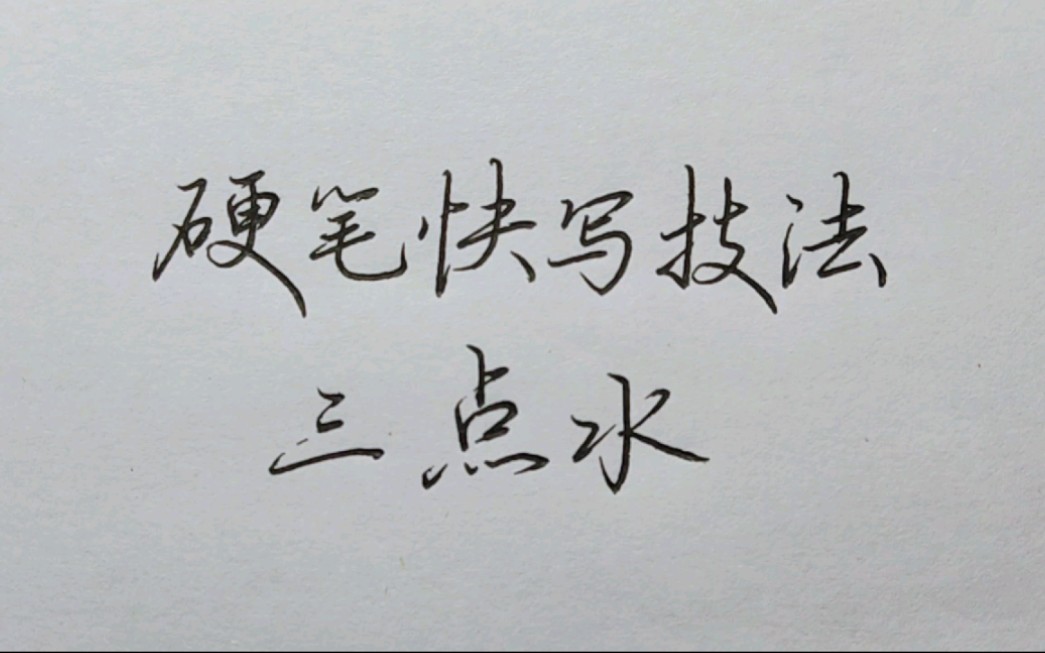 硬笔快写技法
三点水